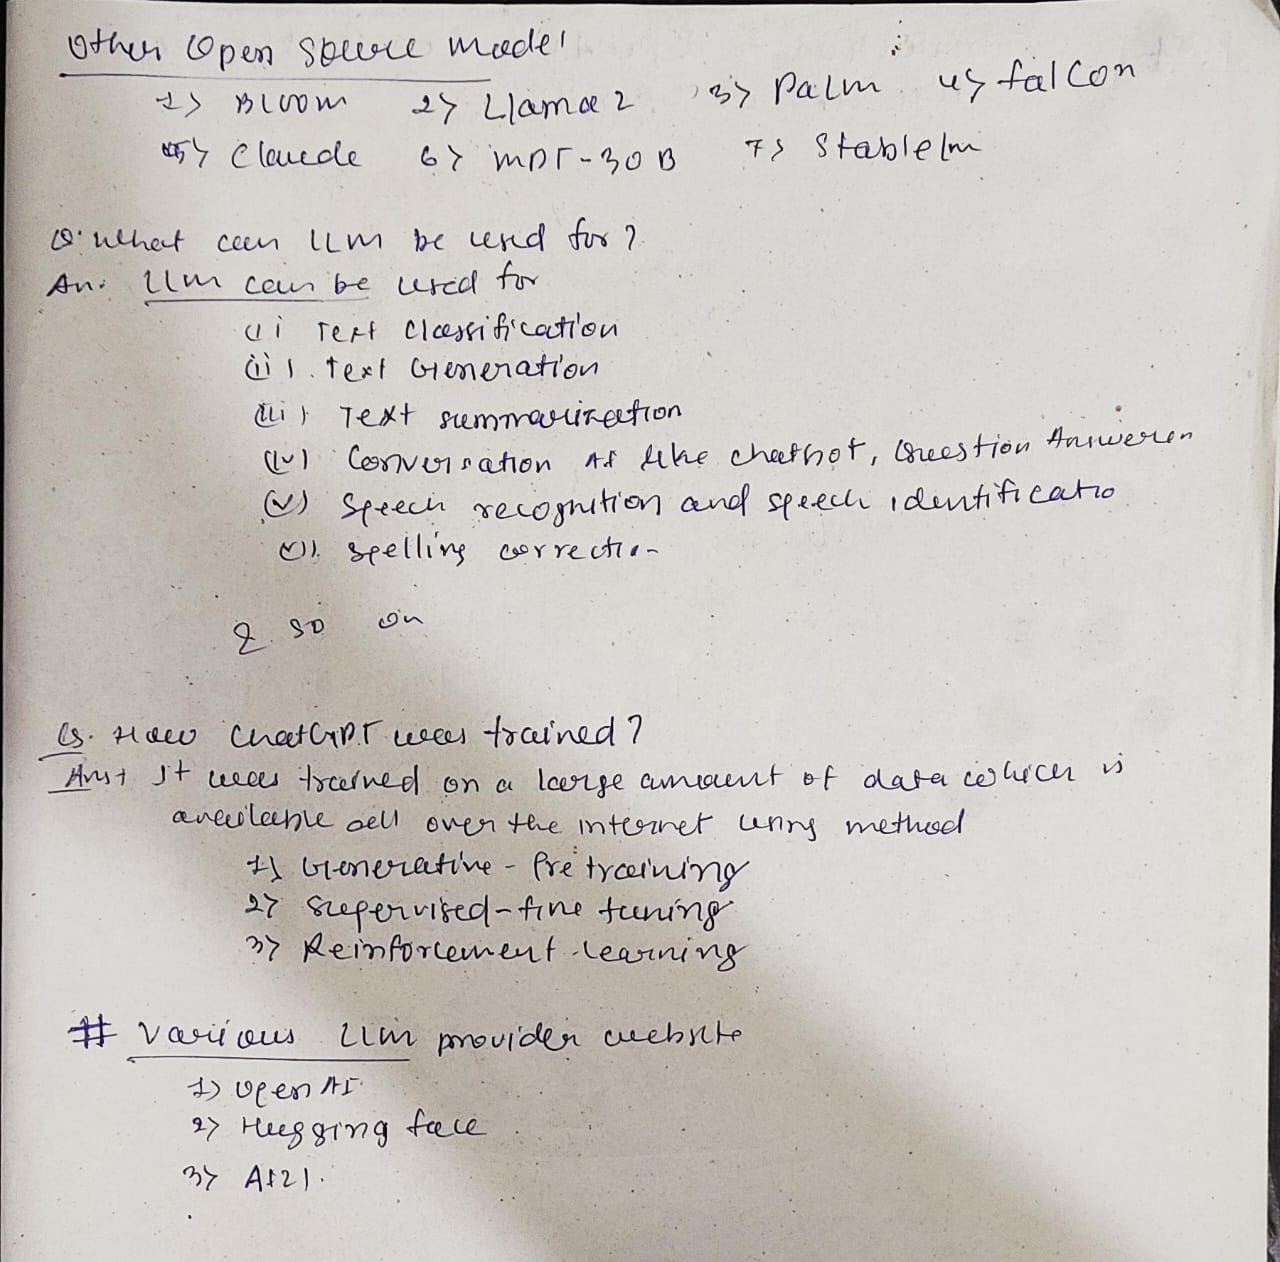 Other Open Source model
1) BLOOM 2) Llama 2 3) Palm 4) falcon
5) Claude 6) MPT-30B 7) Stablelm
Q. What can LLM be used for?
An. LLM can be used for
(i) Text Classification
(ii) Text Generation
(iii) Text summarization
(iv) Conversation AI like chatbot, Question Answeren
(v) Speech recognition and speech identificatio
(vi) spelling correction
& so on
Q. How ChatGPT was trained?
Ans+ It was trained on a large amount of data which is
available all over the internet using method
1) Generative-Pre training
2) Supervised-fine tuning
3) Reinforcement-learning
# Various LLM provider website
1) Open AI
2) Hugging face
3) AI21.